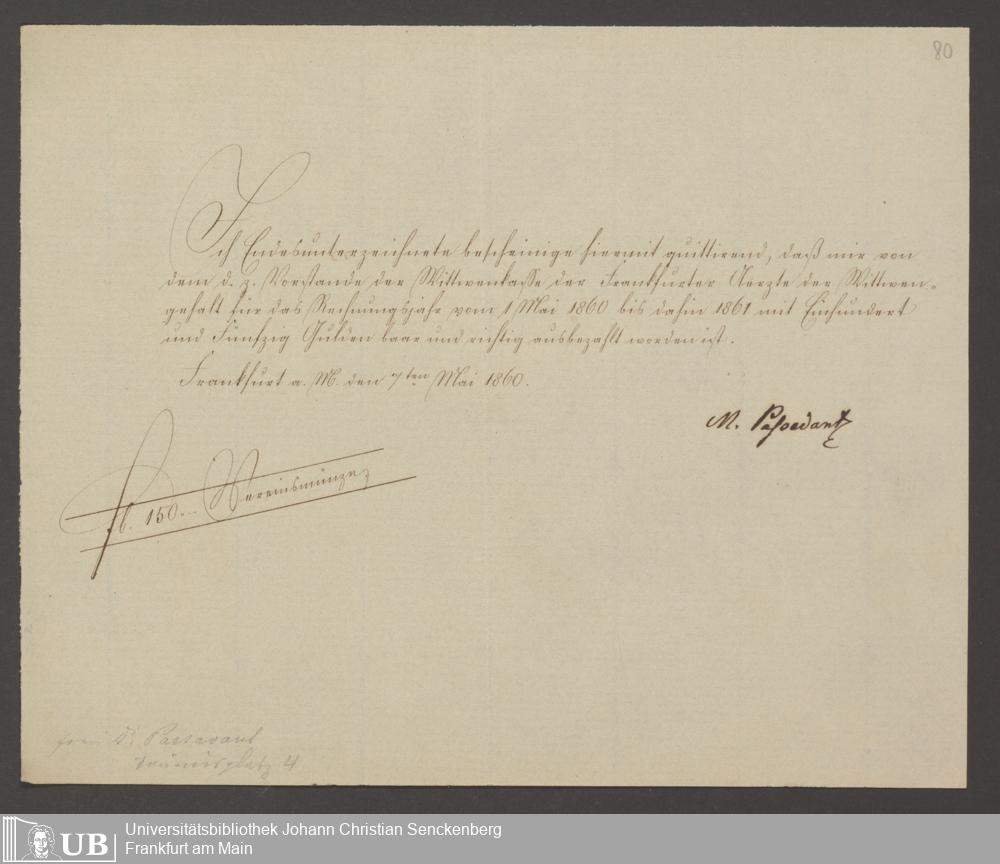 80
Ich Endesunterzeichnete bescheinige hiermit quittirend, daß mir von
dem d. z. Vorstande der Wittwenkasse der Frankfurter Aerzte der Wittwen-
gehalt für das Rechnungsjahr vom 1 Mai 1860 bis dahin 1861 mit Einhundert
und Fünfzig Gulden baar und richtig ausbezahlt worden ist.
Frankfurt a. M. den 7ten Mai 1860.
M. Passavant
fl. 150.- Vereinsmünze
Frau Dr Passavant
4
UB
Universitätsbibliothek Johann Christian Senckenberg
Frankfurt am Main